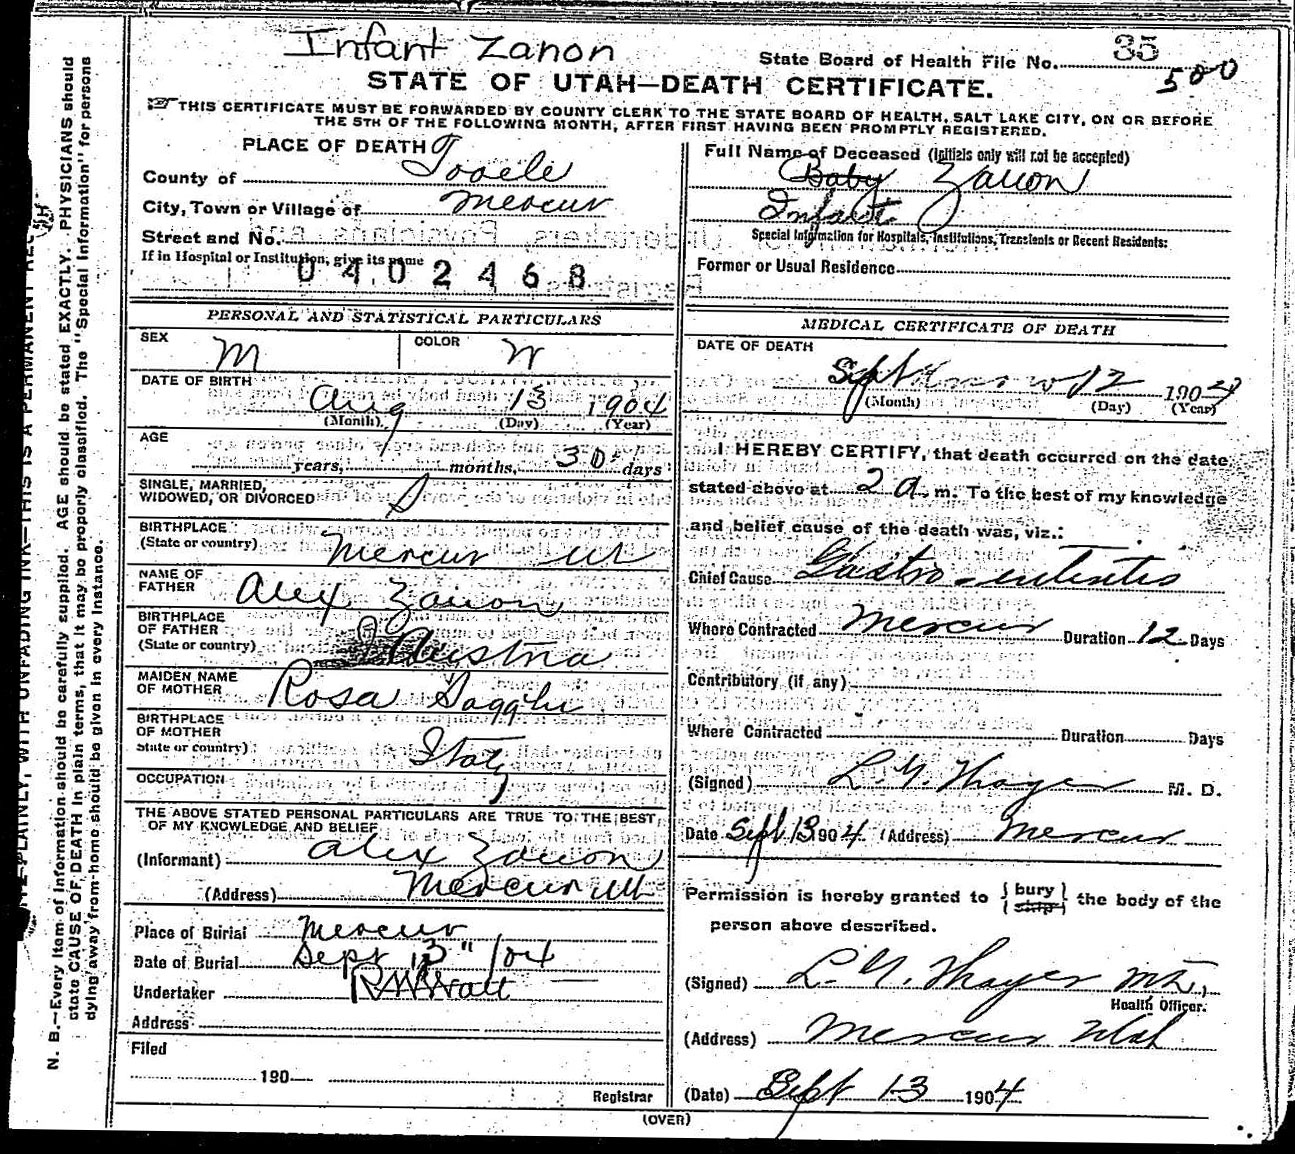 Infant Zanon
State Board of Health File No. 35
500
STATE OF UTAH—DEATH CERTIFICATE.
THIS CERTIFICATE MUST BE FORWARDED BY COUNTY CLERK TO THE STATE BOARD OF HEALTH, SALT LAKE CITY, ON OR BEFORE
THE 5TH OF THE FOLLOWING MONTH, AFTER FIRST HAVING BEEN PROMPTLY REGISTERED.
PLACE OF DEATH
County of Tooele
City, Town or Village of Mercur
Street and No.
If in Hospital or Institution, give its name
0402468
Full Name of Deceased (Initials only will not be accepted)
Baby Zanon
Infant
Special Information for Hospitals, Institutions, Transients or Recent Residents:
Former or Usual Residence
PERSONAL AND STATISTICAL PARTICULARS
SEX M COLOR W
DATE OF BIRTH
Aug 13 1904
(Month) (Day) (Year)
AGE
years, months, 30 days
SINGLE, MARRIED,
WIDOWED, OR DIVORCED S
BIRTHPLACE
(State or country) Mercur Ut
NAME OF
FATHER Alex Zanon
BIRTHPLACE
OF FATHER
(State or country) Austria
MAIDEN NAME
OF MOTHER Rosa
BIRTHPLACE
OF MOTHER
State or country) Italy
OCCUPATION
THE ABOVE STATED PERSONAL PARTICULARS ARE TRUE TO THE BEST
OF MY KNOWLEDGE AND BELIEF
(Informant) Alex Zanon
(Address) Mercur Ut
Place of Burial Mercur
Date of Burial Sept 13" /04
Undertaker
Address
Filed
190
Registrar
MEDICAL CERTIFICATE OF DEATH
DATE OF DEATH
Sept 12 1904
(Month) (Day) (Year)
I HEREBY CERTIFY, that death occurred on the date
stated above at 2 a. m. To the best of my knowledge
and belief cause of the death was, viz.:
Chief Cause Gastro-enteritis
Where Contracted Mercur Duration 12 Days
Contributory (if any)
Where Contracted Duration Days
(Signed) L. Y. Thayer M. D.
Date Sept 13 1904 (Address) Mercur
Permission is hereby granted to { bury ship } the body of the
person above described.
(Signed) L. Y. Thayer MD,
Health Officer.
(Address) Mercur Utah
(Date) Sept 13 1904
(OVER)
N. B.—Every item of information should be carefully supplied. AGE should be stated EXACTLY. PHYSICIANS should
state CAUSE OF DEATH in plain terms, that it may be properly classified. The "Special Information" for persons
dying away from home should be given in every instance.
PLAINLY, WITH UNFADING INK—THIS IS A PERMANENT